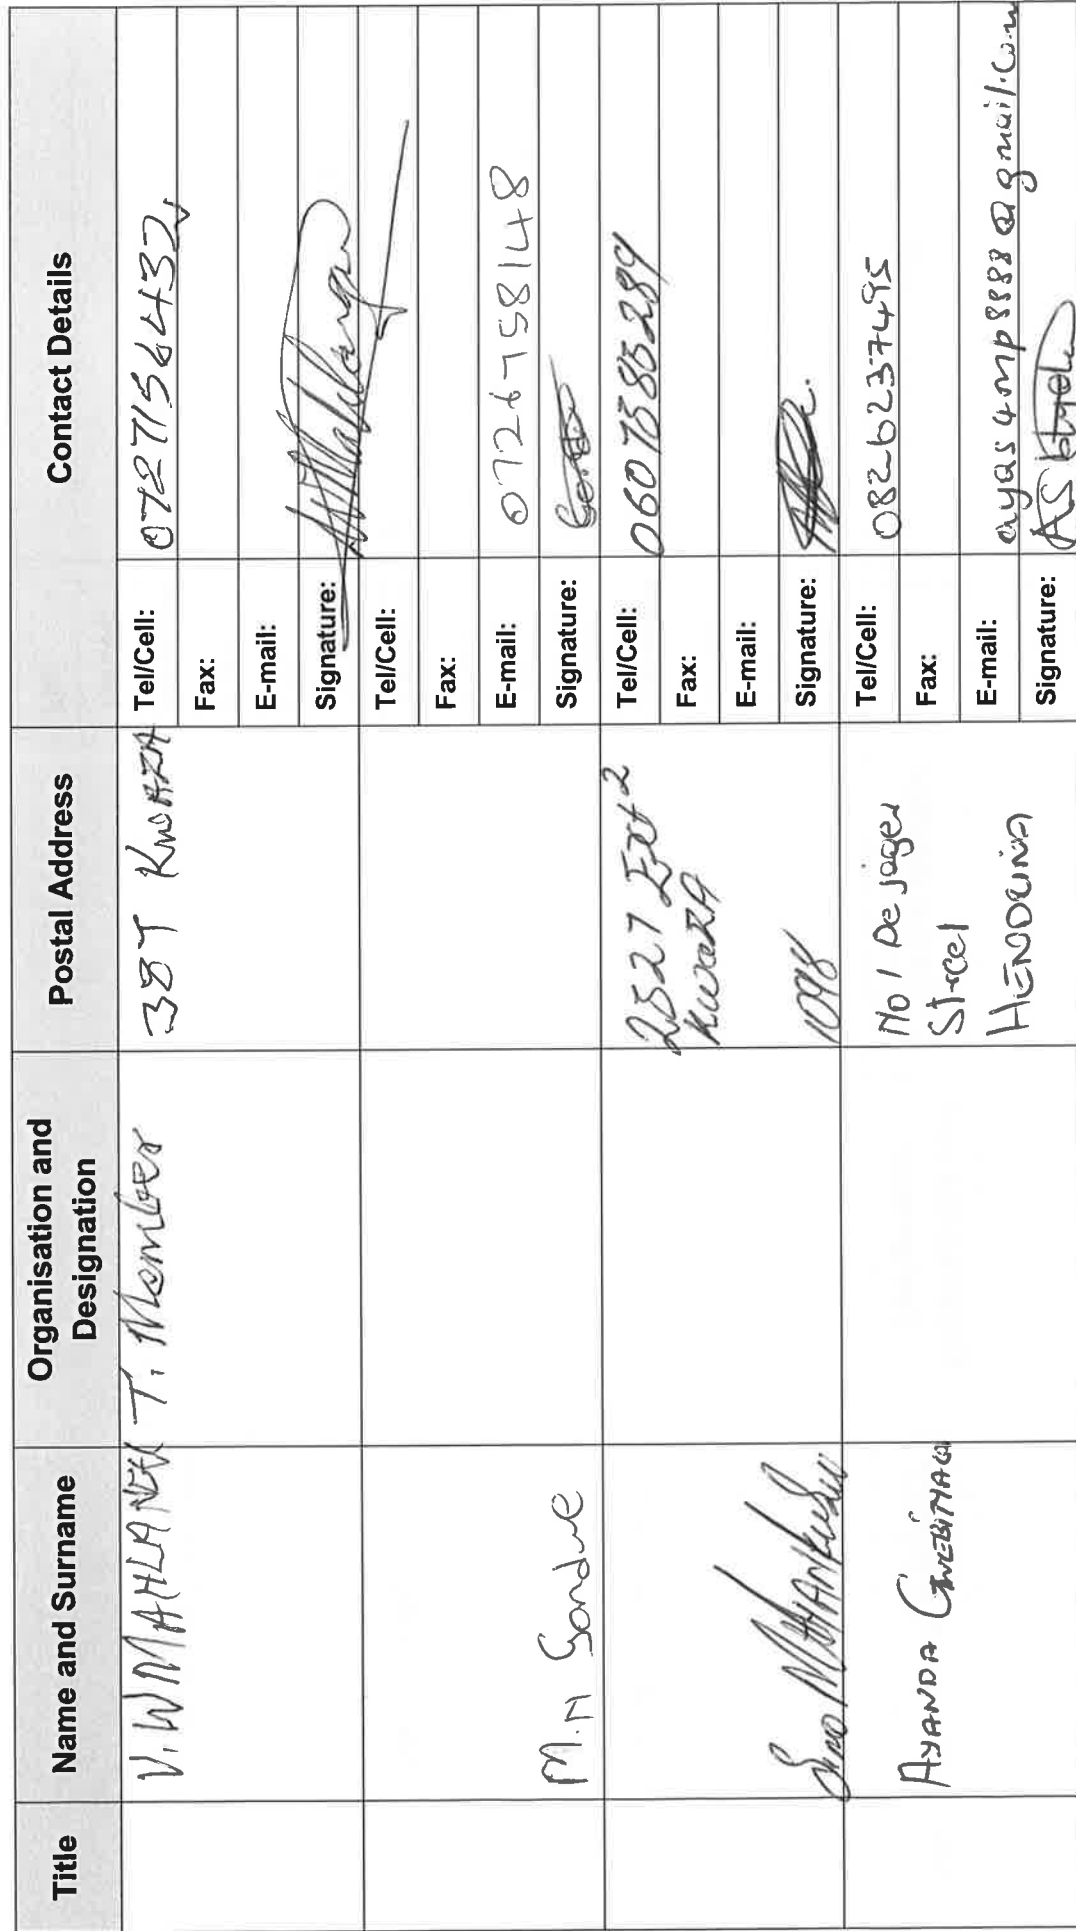 Title
Name and Surname
Organisation and
Designation
Postal Address
Contact Details
V. W MAHLANGU
T. Member
387 KwaZA
Tel/Cell: 0727156432
Fax:
E-mail:
Signature:
M.H
Tel/Cell:
Fax:
E-mail: 0726758148
Signature:
Sino
2527 Ext 2
KwaZA
1098
Tel/Cell: 0607585289
Fax:
E-mail:
Signature:
AYANDA
No 1 De jager
Street
HENDRINA
Tel/Cell: 0826237495
Fax:
E-mail: ayas4mp8888@gmail.com
Signature: